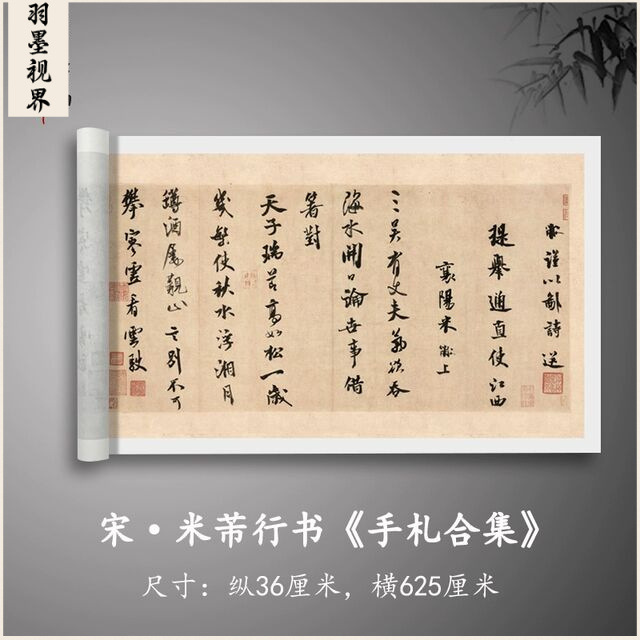 羽墨视界
黻謹以鄙詩送
提舉通直使江西
襄陽米黻上
三吳有丈夫氣欲吞
海水開口論世事借
箸對
天子瑞節高如松一歲
使秋水浮湘月
酒屢親山之別不可
攀寒雲看雲駛
宋·米芾行书《手札合集》
尺寸：纵36厘米，横625厘米